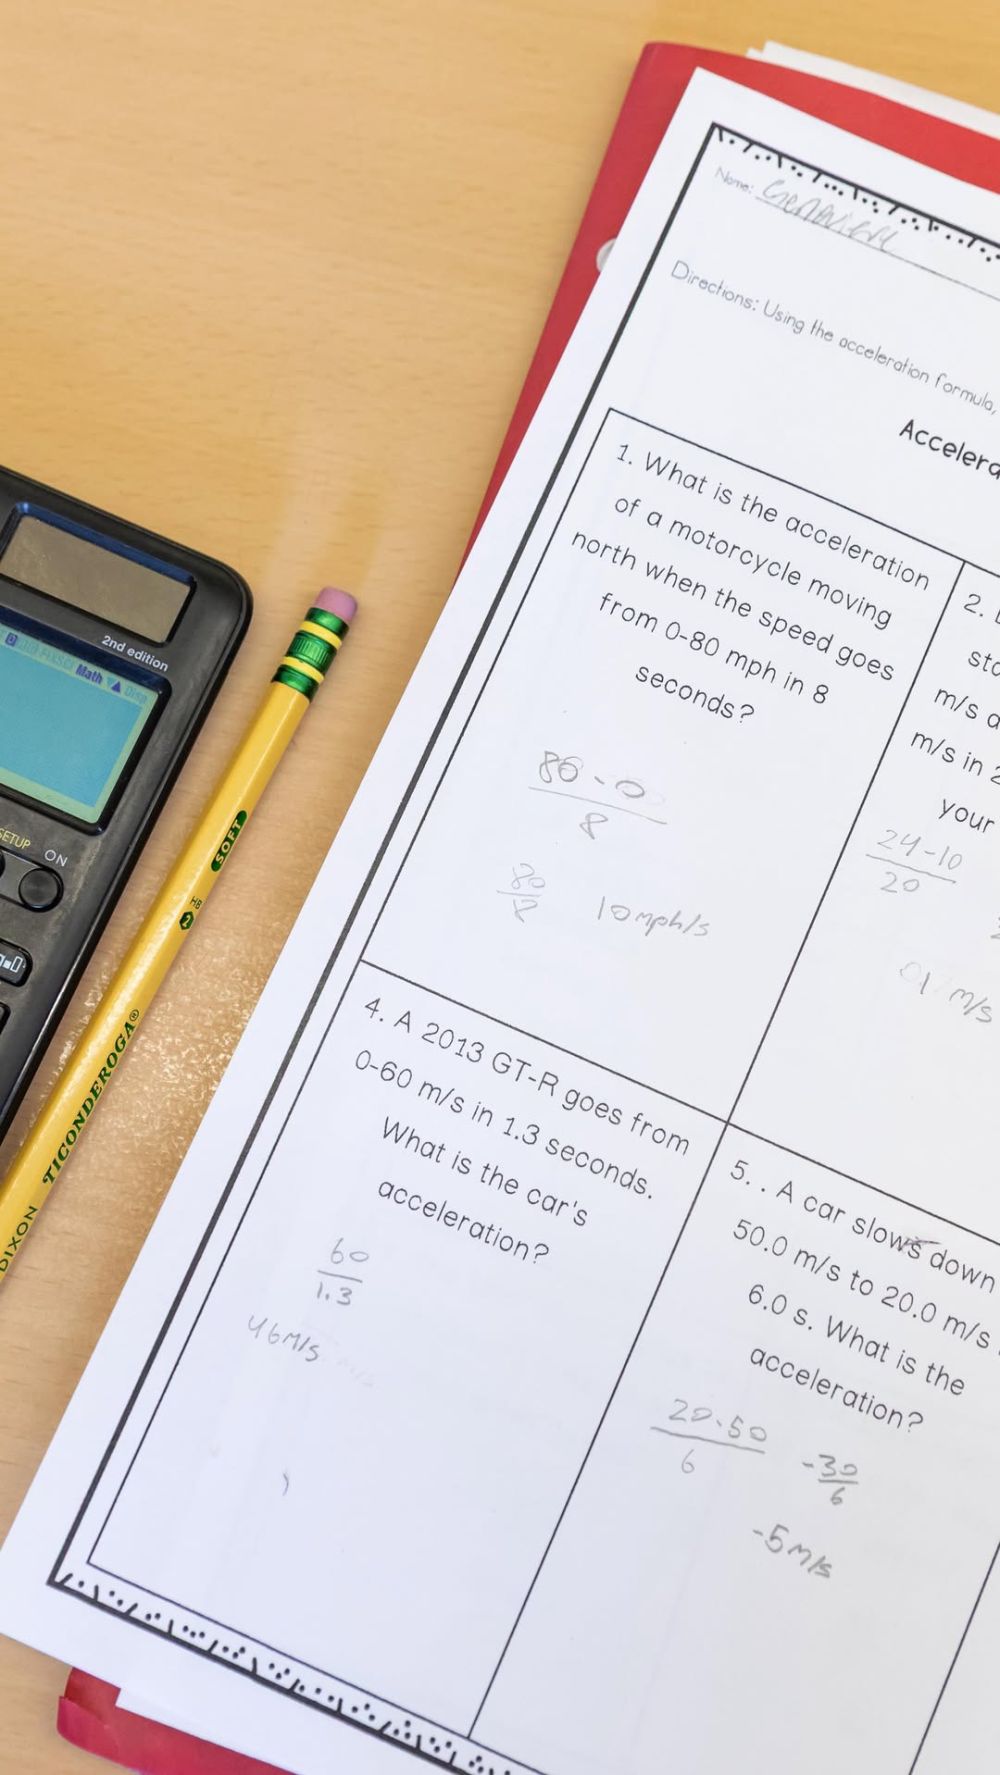 Name: Genevieve
Directions: Using the acceleration formula,
Accelera
1. What is the acceleration
of a motorcycle moving
north when the speed goes
from 0-80 mph in 8
seconds?
80-0
8
80
8
10mph/s
2.
sto
m/s a
m/s in 2
your
24-10
20
m/s
4. A 2013 GT-R goes from
0-60 m/s in 1.3 seconds.
What is the car's
acceleration?
60
1.3
46m/s
5. . A car slows down
50.0 m/s to 20.0 m/s
6.0 s. What is the
acceleration?
20-50
6
-30
6
-5m/s
2nd edition
Math Disp
SETUP ON
SOFT
HB
2
DIXON TICONDEROGA®